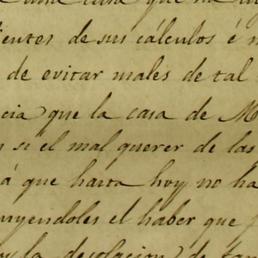 una casa que
ientos de sus cálculos é
de evitar males de tal
cia que la casa de M
si el mal querer de las
á que hasta hoy no ha
uyendoles el haber que
y la desolacion de